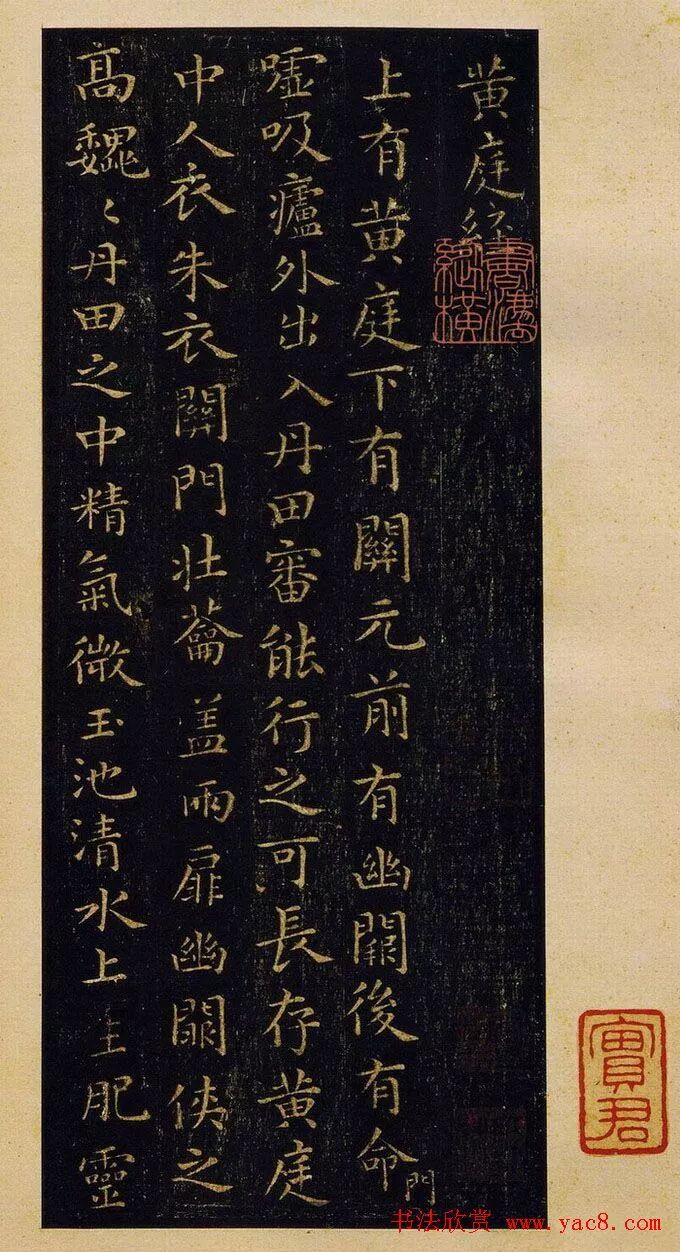 黄庭經
上有黄庭下有關元前有幽闕後有命門
嘘吸廬外出入丹田審能行之可長存黄庭
中人衣朱衣關門壯蘥盖兩扉幽闕俠之
高巍〻丹田之中精氣微玉池清水上生肥靈
實君
书法欣赏 www.yac8.com